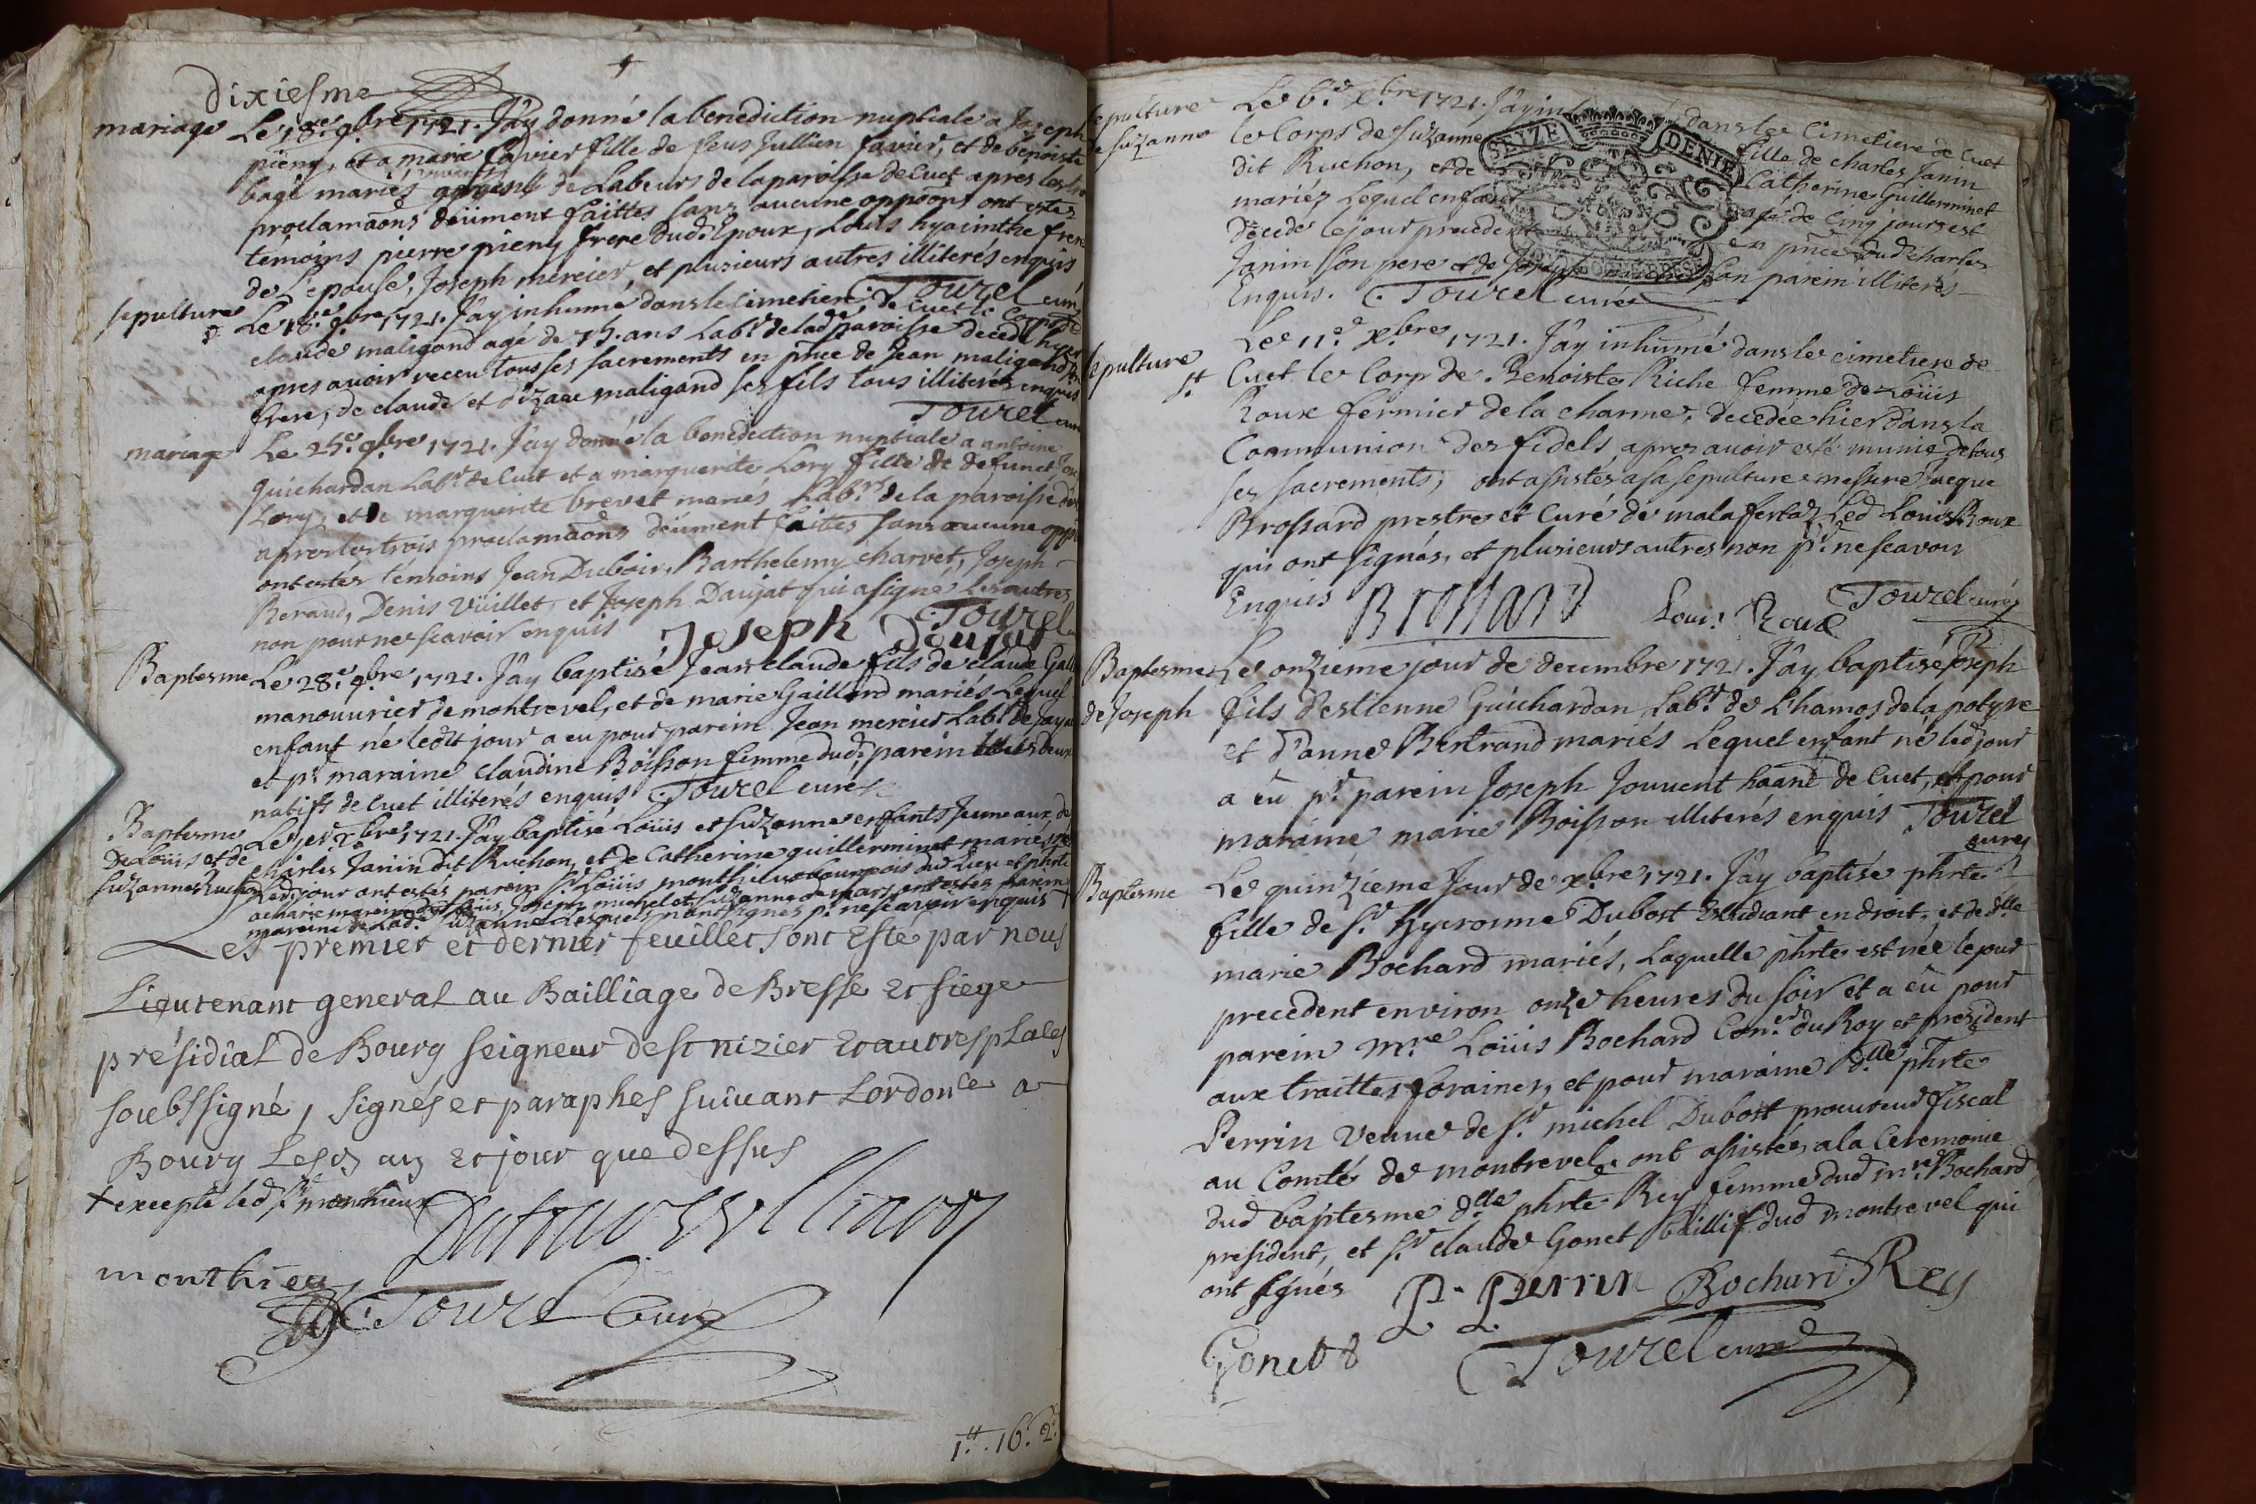 dixiesme
mariage Le 18.e 9bre 1721. J'ay donné la benediction nuptiale a Joseph
pieny, et a marie favier fille de feus Jullien favier, et de benoiste
bagé mariés vivants de Labeurs de la paroisse de Cuet apres les trois
proclamaõns deüment faittes sans aucune oppoõns ont estés
témoins pierre pieny frere dud. Epoux, Louis hyacinthe frere
de L'epouse, Joseph mercier, et plusieurs autres illiterés enquis
Tourel curé
sepulture Le 18.e 9bre 1721. J'ay inhumé dans le cimetiere de Cuet le Corps de
claude maligand agé de 75. ans Lab.r de lad. paroisse decedé hyer
apres avoir receu tous ses sacrements en pñce de Jean maligand son
frere, de claude et d'izaac maligand ses fils tous illiterés enquis
Tourel curé
mariage Le 25.e 9bre 1721. J'ay donné la benediction nuptiale a antoine
guichardan Lab.r de Cuet et a marguerite Lory fille de defunct
Lory, et de marguerite brevet mariés Lab.rs de la paroisse dud.
apres les trois proclamaõns deüment faittes sans aucune oppo
ont estés témoins Jean Dubois, Barthelemy charvet, Joseph
Beraud, Denis Vüillet, et Joseph Daujat qui a signé les autres
non pour ne scavoir enquis Tourel
Joseph Doujat
Baptesme Le 28.e 9bre 1721. J'ay baptisé Jean claude fils de claude
manouvrier de montrevel, et de marie Gaillard mariés Lequel
enfant né ledit jour a eu pour parein Jean mercier Lab.r de Jaya
et p.r maraine claudine Boisson femme dud. parein
natifs de Cuet illiterés enquis. Tourel curé
Baptesme Le 1er xbre 1721. J'ay baptisé Loüis et Suzanne enfants Jumeaux de
De Louis et de charles Janin dit Ruchon, et de Catherine guillerminet mariés
Suzanne Ruchon Led. jour ont estés parein Sr Loüis monthieux bourgeois dud. Lieu et phrte
Les premier et dernier feuillet sont Esté par nous
Lieutenant general au Bailliage de Bresse et siege
présidial de Bourg seigneur de st nizier et autres places
soubssigné, signés et paraphes suivant Lordon.ce a
Bourg Les an et jour que dessus
+ excepté led. Sr monthieux
monthieu
Tourel Curé
1.tt 16. 2.
sepulture Le 6.e xbre 1721. J'ay in dans le Cimetiere de Cuet
de Suzanne le Corps de Suzanne fille de charles Janin
dit Ruchon, et de Catherine Guillerminet
mariés Lequel enfant de cinq jours est
decedé le jour precedent en pñce dud. charles
Janin son pere et de Joseph son parein illiterés
Enquis. Tourel curé
SEIZE DENIE
sepulture Le 11.e xbre 1721. J'ay inhumé dans le cimetiere de
Cuet le Corps de Benoiste Riche femme de Loüis
Roux fermier de la charme, decedée hier dans la
Communion des fidels apres avoir esté munie de tous
ses sacrements; ont assistés a sa sepulture messire Jacque
Brossard prestre et Curé de malafertaz, Led. Louis Roux
qui ont signés, et plusieurs autres non p.r ne scavoir
Enquis Brossard Louis Roux Tourel curé
Baptesme Le onzieme jour de decembre 1721. J'ay baptisé Joseph
de Joseph fils d'estienne Guichardan Lab.r de L'hamos de la potyre
et d'anne Bertrand mariés Lequel enfant né led. jour
a eu p.r parein Joseph Jouvent haãnt de Cuet, et pour
maraine marie Boisson illiterés enquis Tourel
curé
Baptesme Le quinzieme Jour de xbre 1721. J'ay baptisé phrte
fille de S.r hyerosme Dubost Estudiant en droit, et de d.lle
marie Bochard mariés, Laquelle phrte est née le jour
precedent environ onze heures du soir et a eu pour
parein m.re Loüis Bochard Con.er du Roy et president
aux traittes foraines, et pour maraine d.lle phrte
Perrin veuve de S.r michel Dubost procureur fiscal
au Comté de montrevel; ont assistés a la Ceremonie
dud. baptesme d.lle phrte Rey femme dud. m.re Bochard
president, et S.r claude Gonet baillif dud. montrevel qui
ont signés P. Perrin Bochard Rey
Gonet Tourel curé